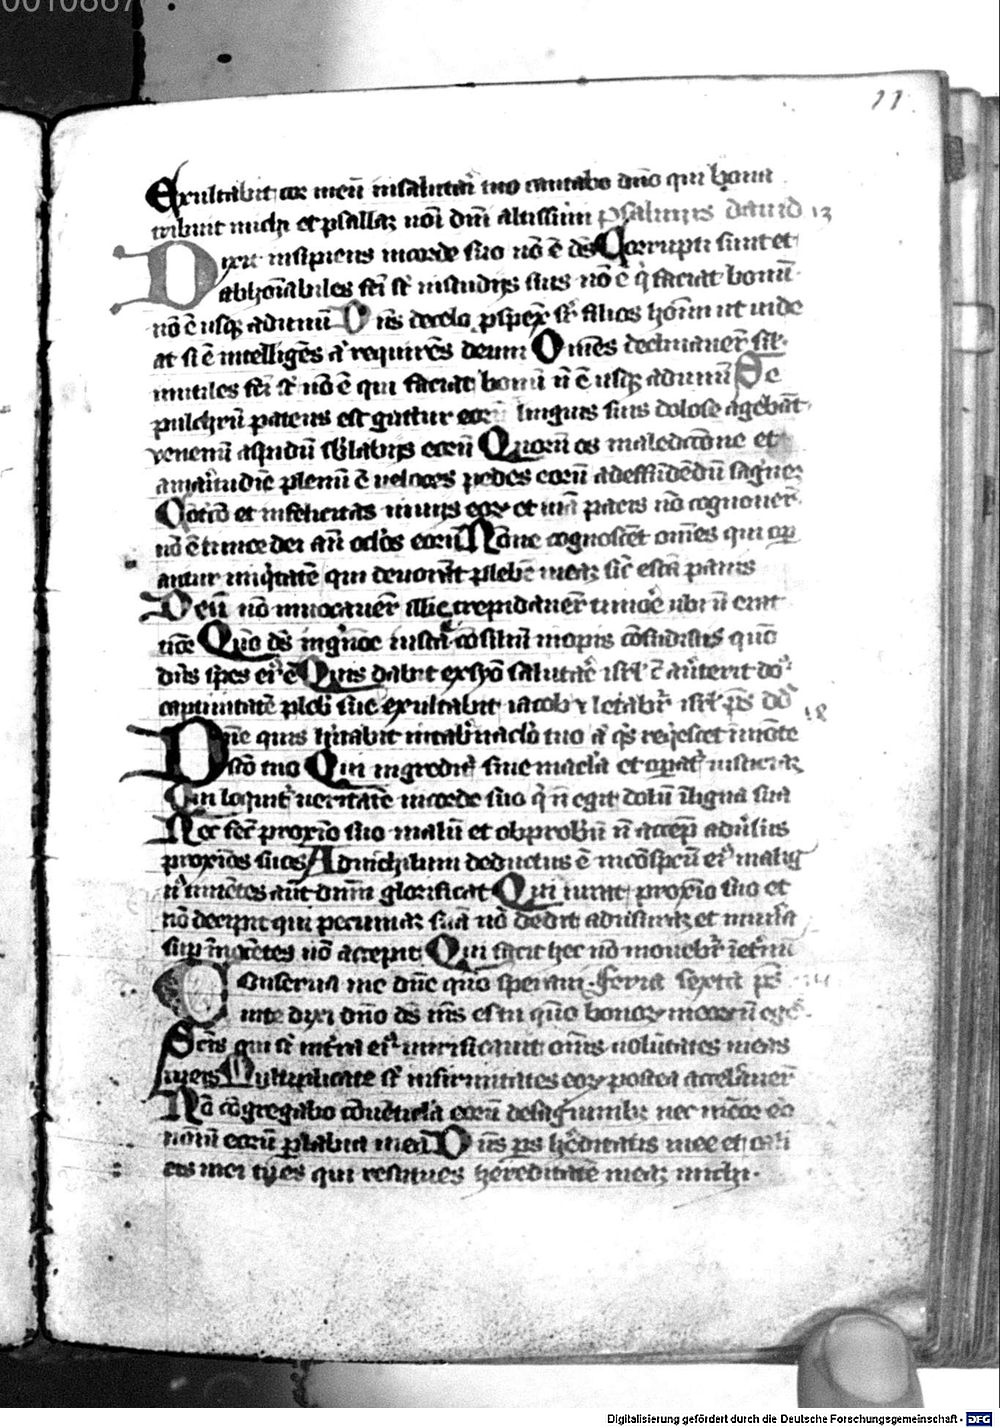 0010867
11
Exultabit cor meū in salutari tuo cantabo dño qui bona
tribuit michi et psallaꝫ noı̄ dnı̄ altissimi psalmus dauid 13
Dixit insipiens in corde suo nō ē dš Corrupti sunt et
abhoı̄abiles fcı̄ st̄ in studijs suis nō ē q̇ faciat bonū
nō ē usqꝫ ad unū Dn̄s de celo ꝓspex̄ sr̄ filios hoı̄m ut uide
at si ē intelligēs aꝰ requirēs deum Om̄es declinauer̄ sil̄
inutiles fcı̄ st̄ nō ē qui faciat bonū n̄ ē usqꝫ ad unū Se
pulchrū patens est guttur eorū linguis suis dolose agebāt
venenū aspidū sb̄ labijs eorū Quorū os maledicōne et
amaritudīe plenū ē veloces pedes eorū ad effūdēdū sāguıeꝫ
Cōtrō et infelicitas in uijs eoꝝ et uiā pacis nō cognouer̄
nō ē timor dei an̄ oclōs eorū Nōne cognoscēt om̄es qui oꝑ
antur iniq̇tatē qui deuorāt plebē meaꝫ sic̄ escā panis
Deū nō inuocauer̄ illic trepidauer̄ timoē ubi n̄ erat
timor Qm̄o dš in gn̄acōe iusta cōsiliū inopis cōfudistis qm̄o
dn̄s spes eiꝰ ē Quis dabit ex syō salutaē isrl̄ c̄ aūterit do
captiuitatē pleb̄ sue exultabit iacob ⁊ letabr̄ isrl̄ ps̄ dd̄ 14
Dn̄e quis hītabit in tab̄naclō tuo aꝰ q̇s reqescet ī mōte
scō tuo Qui ingredit̄ sine macla et oꝑat̄ iusticiaꝫ
Qui loquit̄ ueritatē in corde suo q̇ n̄ egit dolū ī ligua sua
Nec fec̄ proxīo suo malū et obprobiū n̄ accep̄ aduersus
proxīos suos Ad nichilum deductus ē in cōspcū eiꝰ malig
nꝰ timētes aūt dnm̄ glorificat Qui iurat proxīo suo et
nō decipit qui pecuniaꝫ suā nō dedit ad usuraꝫ et mun̄a
suꝑ īnocētes nō accepit Qui facit hec nō mouebr̄ ī et̄nū
Conserua me dn̄e qm̄o speraui feria sexta ps̄
in te dixi dn̄o dš m̄s es tu qm̄o bonoꝝ meoꝝ n̄ eges
Scı̄s qui st̄ in tr̄ra eiꝰ mirificauit om̄s uolūtates meas
in eis Multiplicate st̄ infirmitates eoꝝ postea accelauer̄
Nō cōgregabo cōuēticla eorū de sāguinibꝫ nec mēor ero
noı̄m eorū ꝑ labia mea Dn̄s ps̄ h̄editatis mee et cali
cis mei tu es qui restitues hereditatē meaꝫ michi
Digitalisierung gefördert durch die Deutsche Forschungsgemeinschaft - DFG